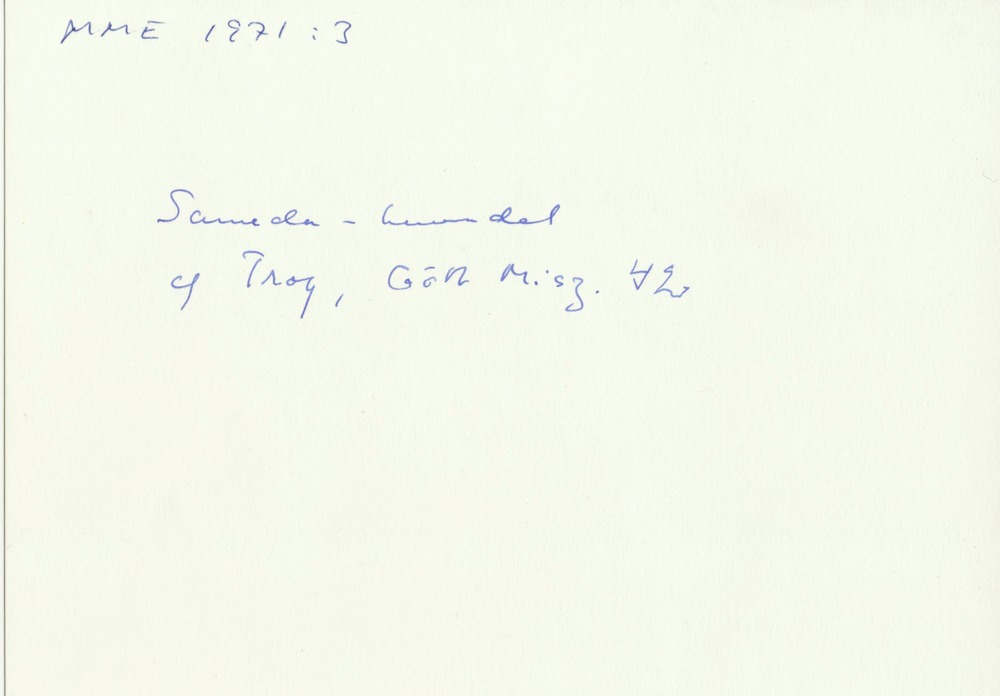 MME 1971 : 3
Sameda - hundel
cf Troy, Gött Misz. 42